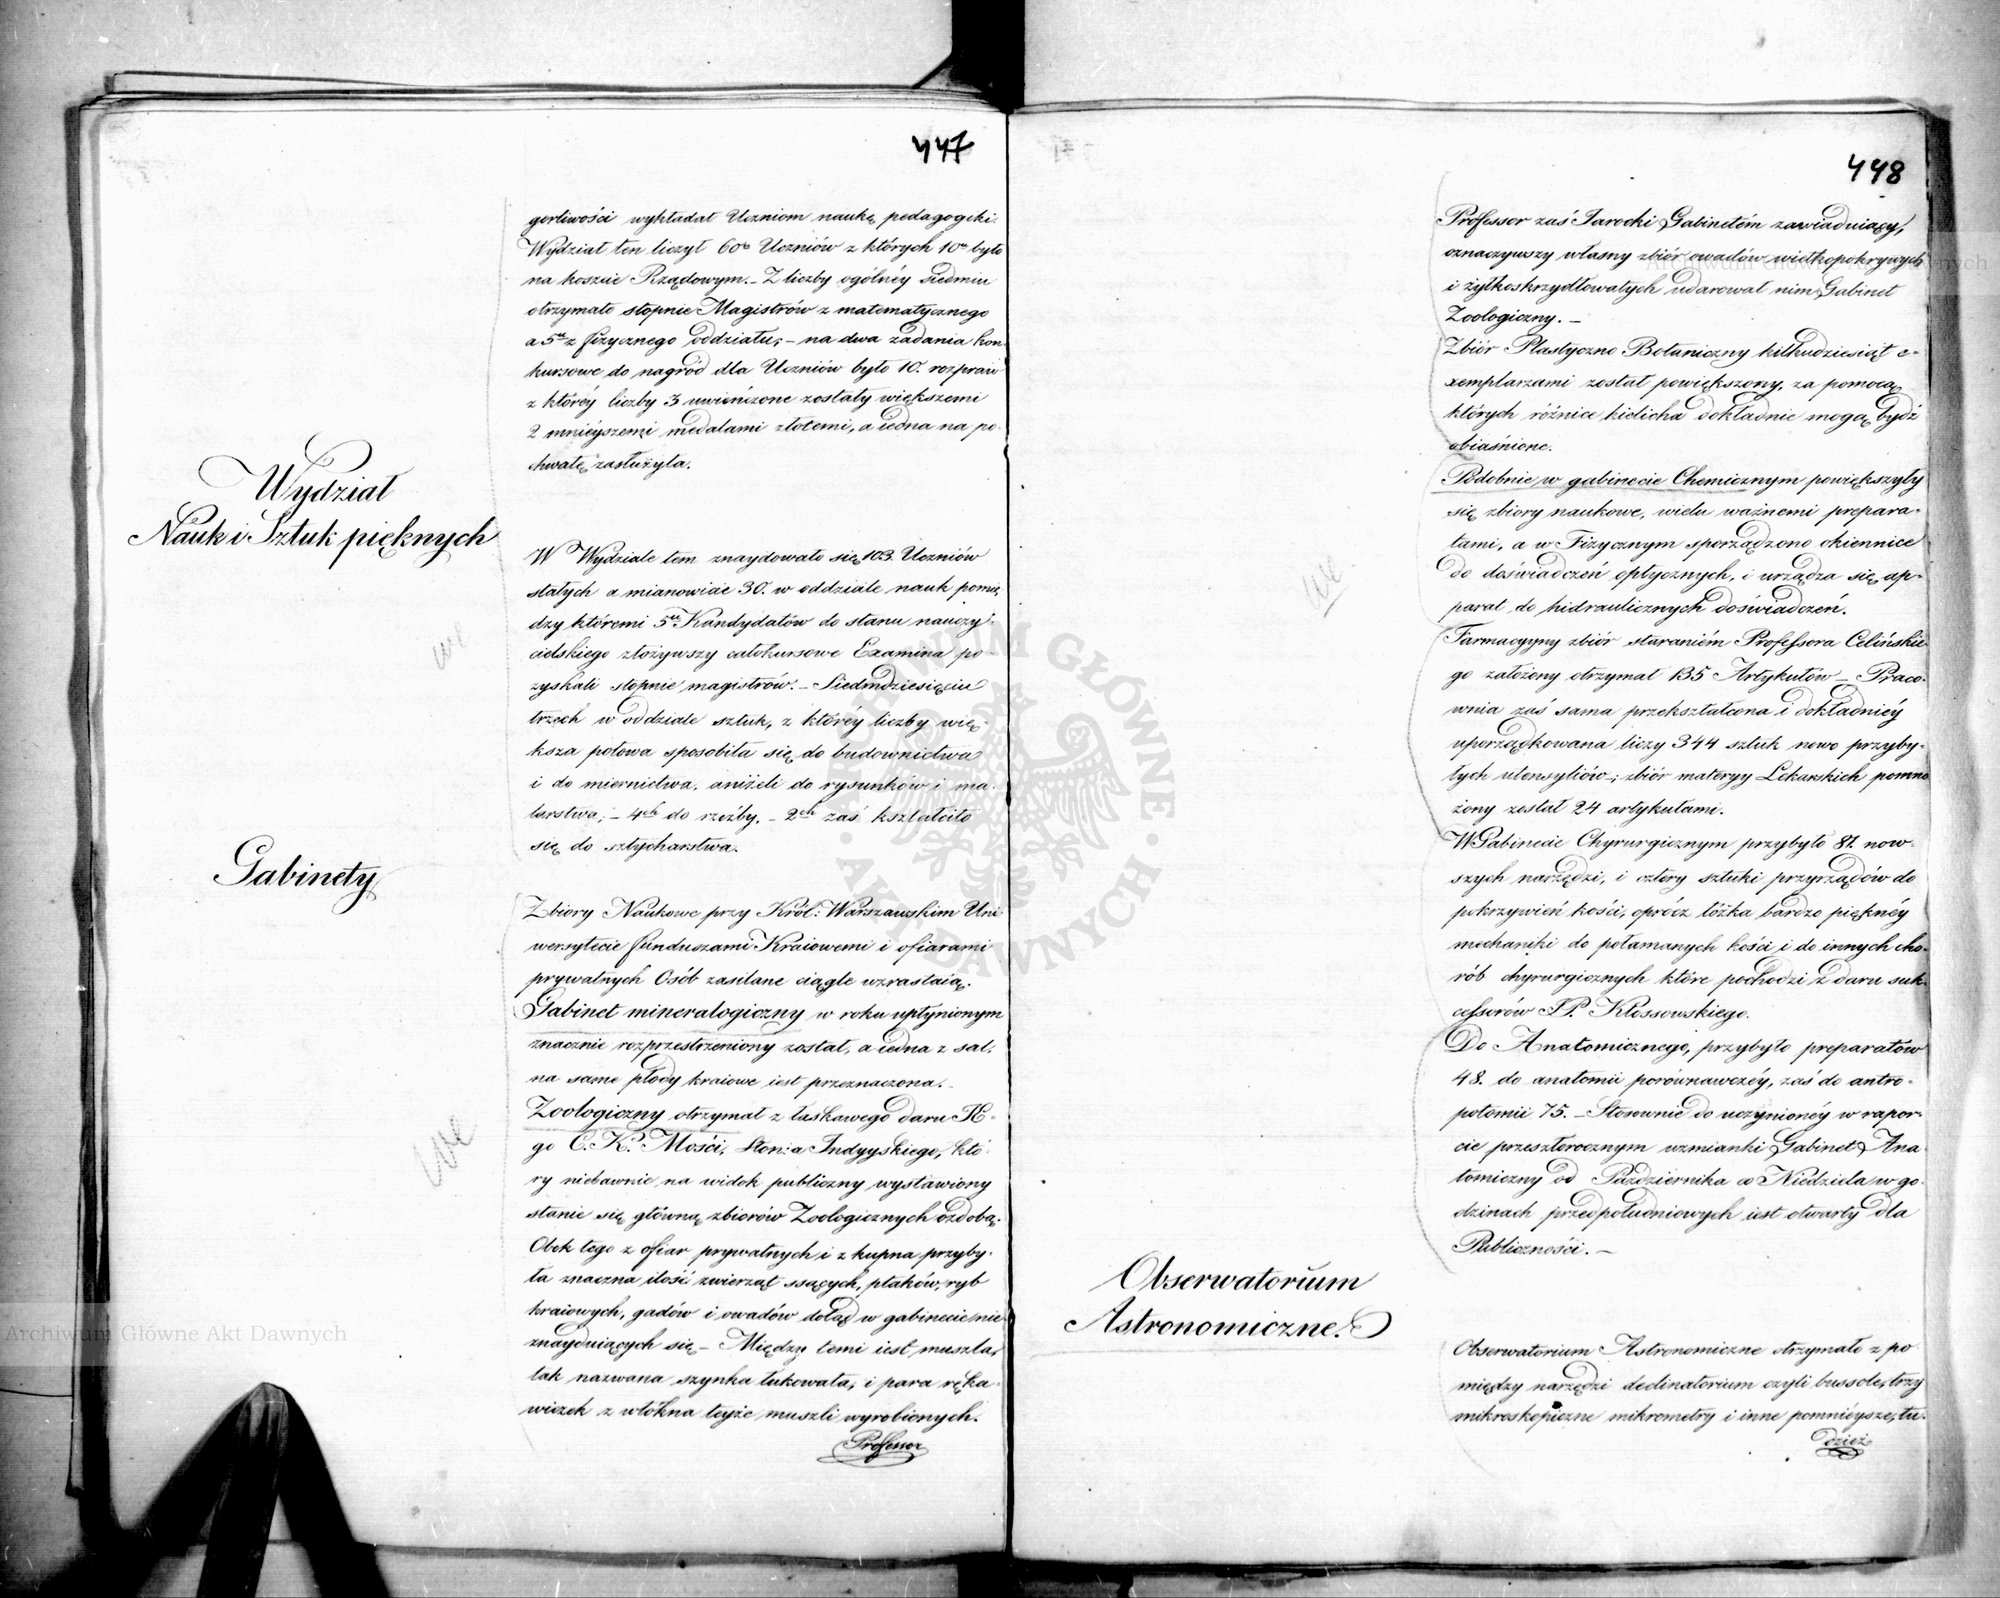 447
gorliwości wykładał Uczniom naukę pedagogiki.
Wydział ten liczył 60u Uczniów z których 10u było
na koszcie Rządowym. – Z liczby ogólnéy siedmiu
otrzymało stopnie Magistrów z matematycznego
a 5u z fizycznego oddziału; – na dwa zadania kon-
kursowe do nagród dla Uczniów było 10. rozpraw
z któréy liczby 3 uwieńczone zostały większemi
2 mnieyszemi medalami złotemi, a iedna na po-
chwałę zasłużyła.
Wydział
Nauk i Sztuk pięknych
W Wydziale tem znaydowało się 103. Uczniów
stałych a mianowicie 30. w oddziale nauk pomię-
dzy któremi 5u Kandydatów do stanu nauczy-
cielskiego złożywszy całokursowe Examina po-
zyskali stopnie magistrów. – Siedmdziesięciu
trzech w oddziale sztuk, z któréy liczby wię-
ksza połowa sposobiła się do budownictwa
i do miernictwa, aniżeli do rysunków i ma-
larstwa; – 4ch do rzeźby, – 2ch zaś kształciło
się do sztycharstwa.
Gabinety
Zbiory Naukowe przy Król: Warszawskim Uni-
wersytecie funduszami Kraiowemi i ofiarami
prywatnych Osób zasilane ciągle wzrastaią.
Gabinet mineralogiczny w roku upłynionym
znacznie rozprzestrzeniony został, a iedna z sal,
na same płody kraiowe iest przeznaczona. –
Zoologiczny otrzymał z łaskawego daru JE-
go C. K. Mości, Słonia Indyyskiego, któ-
ry niebawnie na widok publiczny wystawiony
stanie się główną zbiorów Zoologicznych ozdobą.
Obok tego z ofiar prywatnych i z kupna przyby-
ła znaczna ilość zwierząt ssących, ptaków, ryb
kraiowych, gadów i owadów dotąd w gabinecie nie
znayduiących się – Między temi iest muszla,
tak nazwana szynka łukowata, i para ręka-
wiczek z włókna teyże muszli wyrobionych.
Professor
448
Professor zaś Jarocki Gabinetém zawiaduiący,
oznaczywszy własny zbiór owadów wielkopokrywych
i żyłkoskrzydłowatych udarował nim Gabinet
Zoologiczny. –
Zbiór Plastyczno Botaniczny kilkudziesiąt e-
xemplarzami został powiększony, za pomocą
których różnice kielicha dokładnie mogą bydź
obiaśnione.
Podobnie w gabinecie Chemicznym powiększyły
się zbiory naukowe, wielu ważnemi prepara-
tami, a w Fizycznym sporządzono okiennice
do doświadczeń optycznych, i urządza się ap-
parat do hidraulicznych doświadczeń.
Farmacyyny zbiór staraniém Professora Celińskie-
go założony otrzymał 135 Artykułów – Praco-
wnia zaś sama przekształcona i dokładniéy
uporządkowana liczy 344 sztuk nowo przyby-
łych utensyliów; zbiór materyy Lekarskich pomno
żony został 24 artykułami.
W Gabinecie Chyrurgicznym przybyło 81. now-
szych narzędzi, i cztery sztuki przyrządów do
pokrzywień kości, oprócz łóżka bardzo piękney
mechaniki do połamanych kości i do innych cho-
rób chyrurgicznych które pochodzi z daru suk-
cessorów JP. Kłossowskiego.
Do Anatomicznego, przybyło preparatów
48. do anatomii porównawczéy, zaś do antro-
potomii 75. – Stosownie do uczynionéy w rapor-
cie przeszłorocznym wzmianki Gabinet Ana
tomiczny od Października co Niedziela w go-
dzinach przedpołudniowych iest otwarty dla
Publiczności. –
Obserwatorium
Astronomiczne.
Obserwatorium Astronomiczne otrzymało z po-
między narzędzi declinatorium czyli bussolę, trzy
mikroskopiczne mikrometry i inne pomnieysze, tu-
dzież
Archiwum Główne Akt Dawnych
Archiwum Główne Akt Dawnych
ARCHIWUM GŁÓWNE · AKT DAWNYCH ·